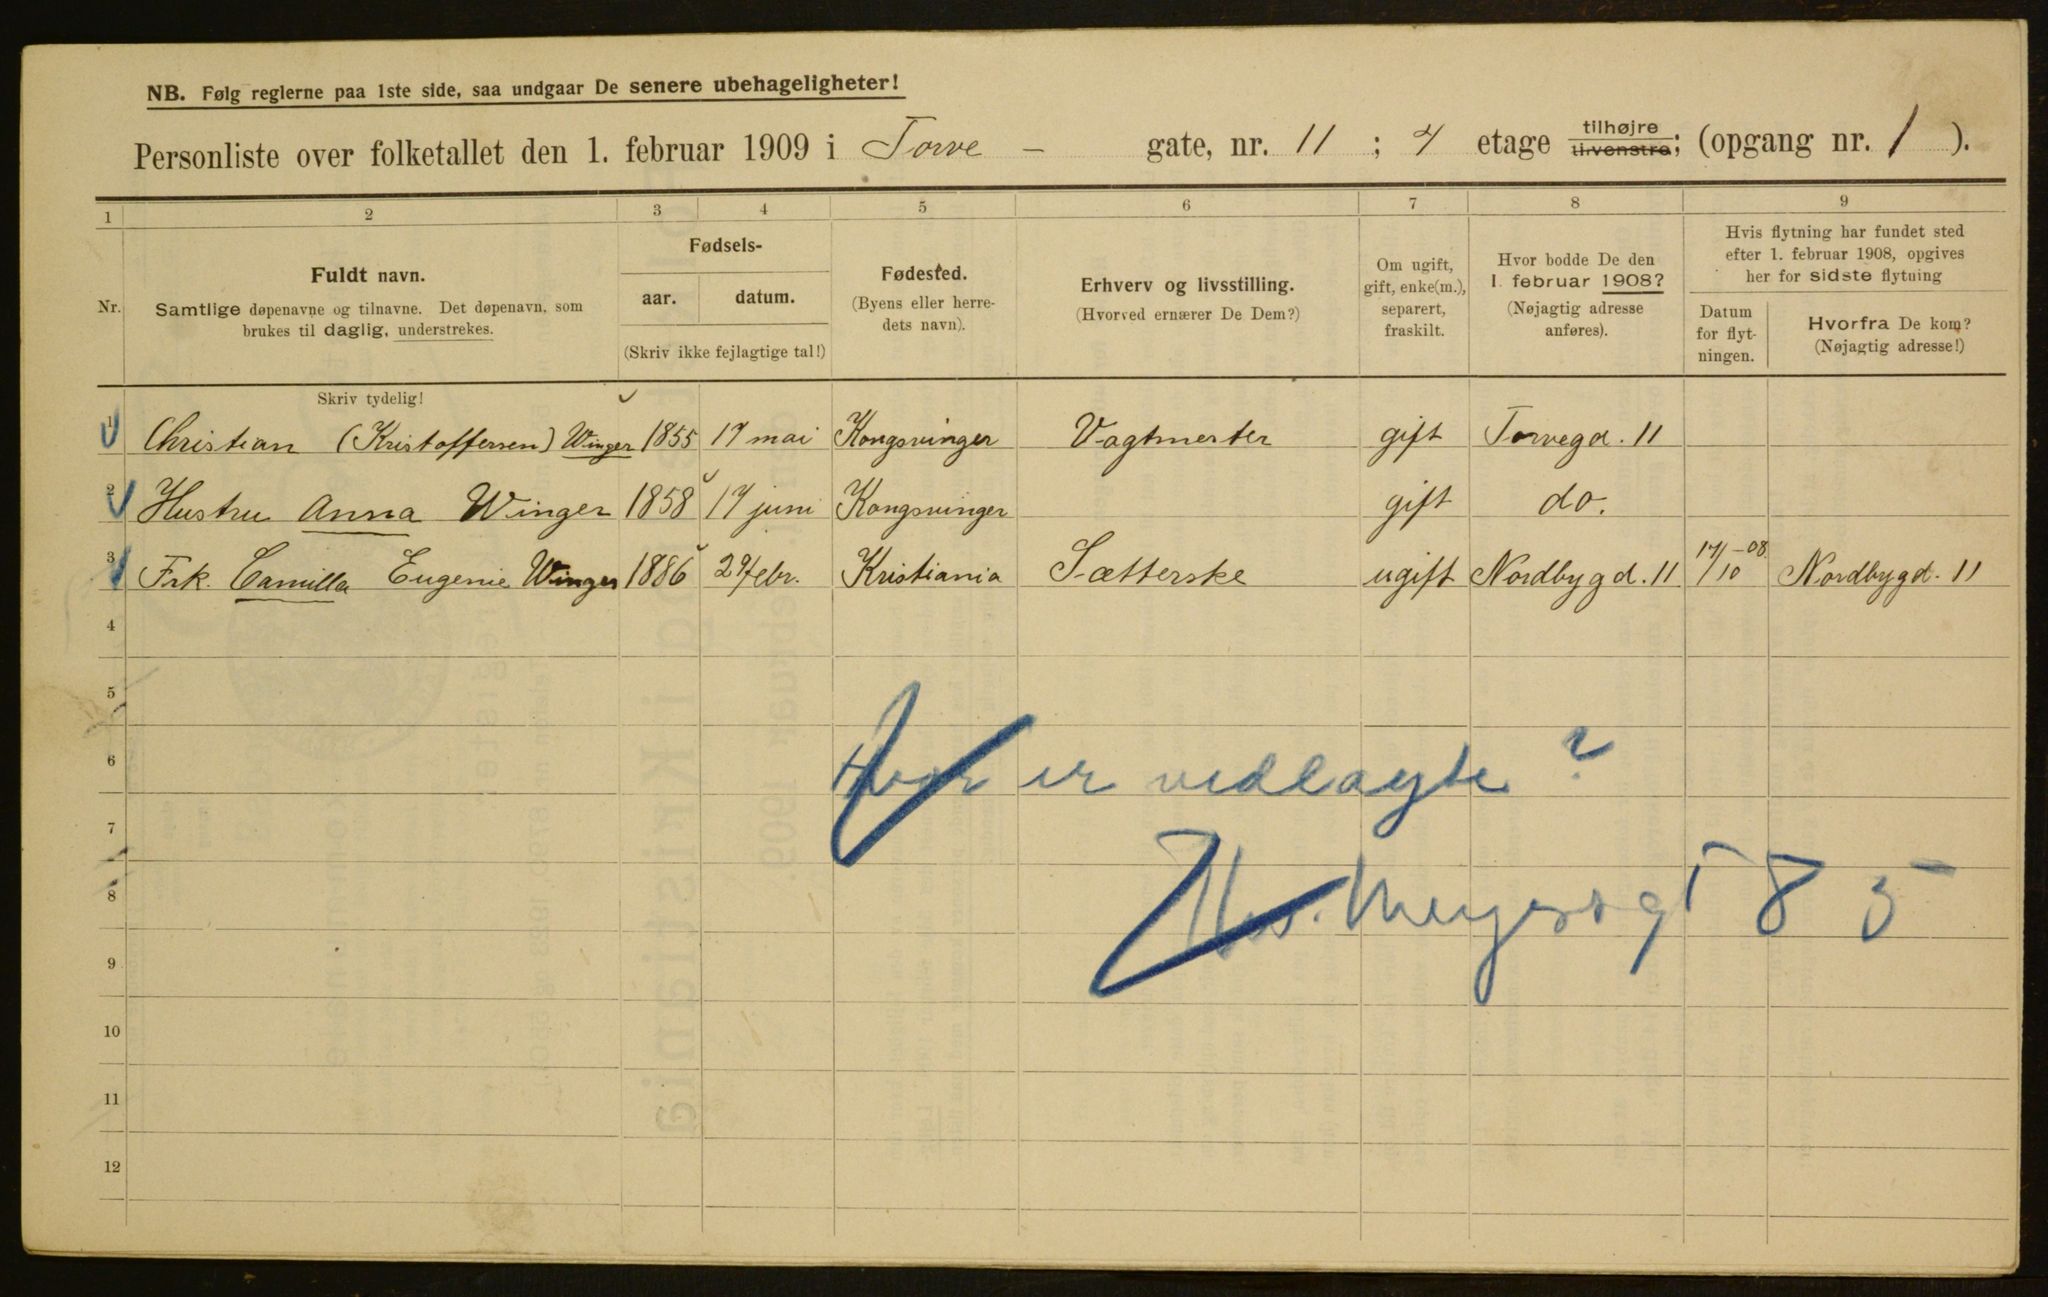 NB. Følg reglerne paa 1ste side, saa undgaar De senere ubehageligheter!
Personliste over folketallet den 1. februar 1909 i Torve - gate, nr. 11 ; 4 etage tilhøjre tilvenstre; (opgang nr. 1 ).
1 2 3 4 5 6 7 8 9
Nr.
Fuldt navn.
Samtlige døpenavne og tilnavne. Det døpenavn, som
brukes til daglig, understrekes.
Fødsels-
aar. datum.
(Skriv ikke fejlagtige tal!)
Fødested.
(Byens eller herre-
dets navn).
Erhverv og livsstilling.
(Hvorved ernærer De Dem?)
Om ugift,
gift, enke(m.),
separert,
fraskilt.
Hvor bodde De den
1. februar 1908?
(Nøjagtig adresse
anføres).
Hvis flytning har fundet sted
efter 1. februar 1908, opgives
her for sidste flytning
Datum
for flyt-
ningen.
Hvorfra De kom?
(Nøjagtig adresse!)
Skriv tydelig!
1 Christian (Kristoffersen) Winger 1855 17 mai Kongsvinger Vagtmester gift Torvegd. 11
2 Hustru Anna Winger 1858 17 juni Kongsvinger gift do.
3 Frk. Camilla Eugenie Winger 1886 27 febr. Kristiania Sætterske ugift Nordbygd. 11 17/10 -08 Nordbygd. 11
4
5
6
Hvor er vedlagte?
7
8
Meyersgt 85
9
10
11
12